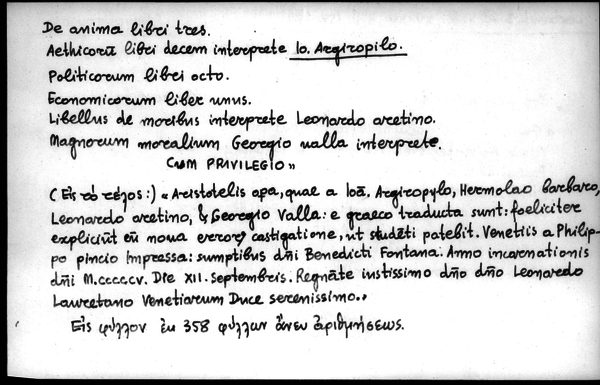 De anima libri tres.
Aethicorū libri decem interprete Io. Argiropilo.
Politicorum libri octo.
Economicorum liber unus.
Libellus de moribus interprete Leonardo aretino.
Magnorum moralium Georgio ualla interprete.
CUM PRIVILEGIO»
(Εἰς τὸ τέλος:) «Aristotelis opa, quae a Ioā. Argiropylo, Hermolao barbaro,
Leonardo aretino, & Georgio Valla: e graeco traducta sunt: foeliciter
expliciūt cū noua errorꝝ castigatione, ut studēti patebit. Venetiis a Philip-
po pincio Impressa: sumptibus dn̄i Benedicti Fontana. Anno incarnationis
dn̄i M.CCCCCV. Die XII. Septembris. Regnāte iustissimo dn̄o dn̄o Leonardo
Lauretano Venetiarum Duce serenissimo.»
Εἰς φύλλον ἐκ 358 φύλλων ἄνευ ἀριθμήσεως.